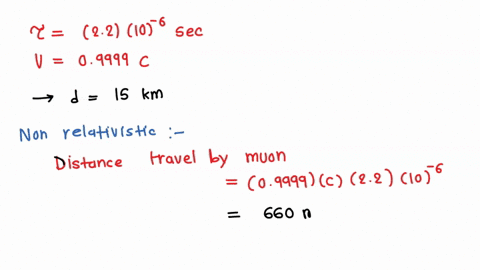 τ = (2.2) (10)⁻⁶ sec
V = 0.9999 c
→ d = 15 km
Non relativistic :-
Distance travel by muon
= (0.9999) (c) (2.2) (10)⁻⁶
= 660 n